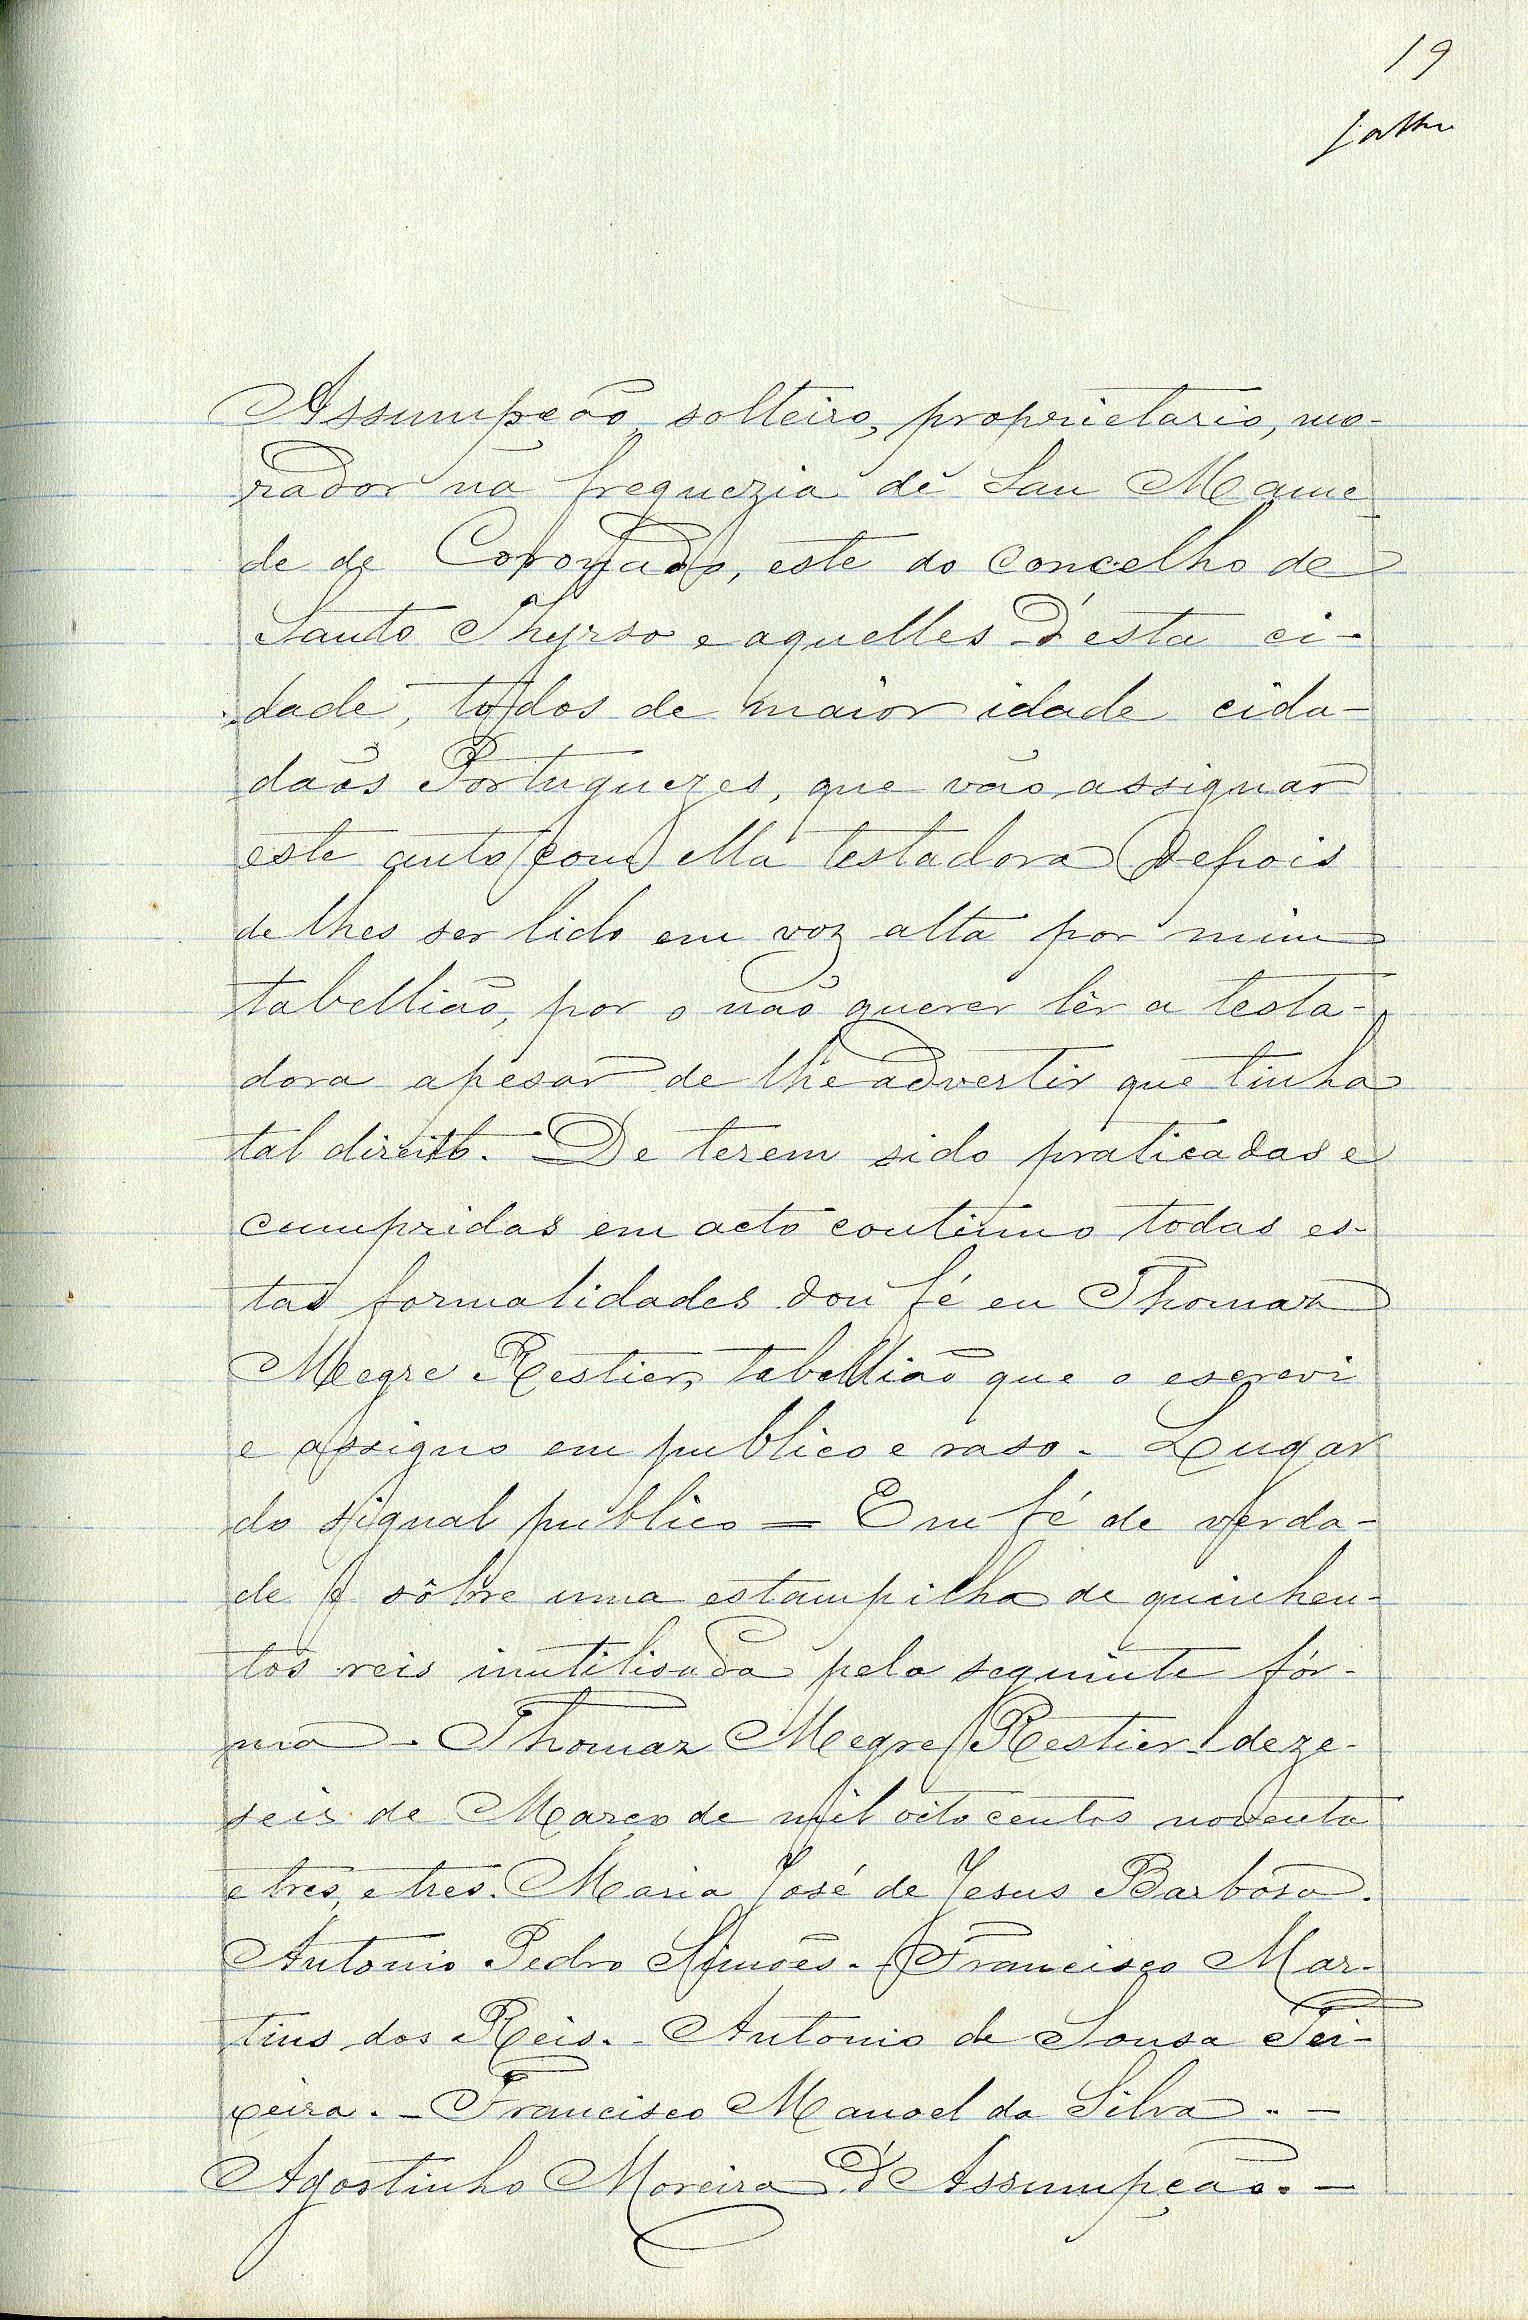 19
Assumpção, solteiro, proprietario, mo-
rador na freguezia de San Mame
de de Coronado, este do concelho de
Santo Thyrso e aquelles d'esta ci-
dade, todos de maior idade cida-
daõs Portuguezes, que vão assignar
este auto com ella testadora depois
de lhes ser lido em voz alta por mim
tabellião, por o não querer lêr a testa-
dora apesar de lhe advertir que tinha
tal direito. De terem sido praticadas e
cumpridas em acto continuo todas es-
tas formalidades dou fé eu Thomaz
Megre Restier, tabellião que o escrevi
e assigno em publico e raso. Lugar
do signal publico = Em fé de verda-
de e sôbre uma estampilha de quinhen-
tos reis inutilisada pela seguinte fór-
ma - Thomaz Megre Restier - deze-
seis de Março de mil oitocentos noventa
e tres, e tres. Maria José de Jesus Barbosa.
Antonio Pedro Simões. - Francisco Mar-
tins dos Reis. - Antonio de Sousa Tei-
xeira. - Francisco Manoel da Silva. -
Agostinho Moreira d'Assumpção. -